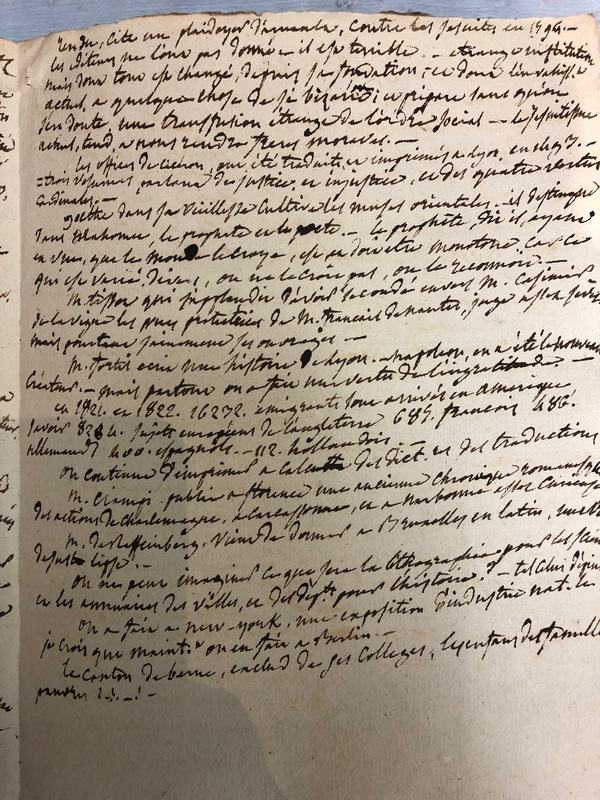 rendu, cite un plaidoyer d'arnauld, contre les jesuites en 1594. —
les éditeurs ne l'ont pas donné — il est terrible. — étrange institution
mais dont tout est changé, depuis sa fondation; ce dont l'envahisse
actuel, a quelque chose de si bizarre; ce prépare sans qu'on
s'en doute une transfusion étrange de l'ordre social — le jesuitisme
actuel, tend, a nous rendre freres moraves. —
les offices de ciceron, ont été traduits, et imprimés a lyon, en
trois volumes, parlant de justice, et injustice, et des quatre vertus
cardinales. —
goethe dans sa vieillesse cultive les muses orientales. — il distingue
dans mahomet, le prophete et le poete. — le prophete, dit il, ayant
en vue, que le monde le croye, est, et doit etre monotone, car ce
qui est varié, divers, on ne le croit pas, on le reconnoit. —
M. tissot qui s'applaudit d'avoir secondé envers M. casimir
de la vigne les vues protectrices de M. français de nantes, juge assez
mais pourtant sainement ses ouvrages —
M. fortis ecrit une histoire de lyon. — napoleon, en a été le nouveau
créateur. — mais partout on a fait une vertu de l'ingratitude. —
en 1821. et 1822. 16232. emigrants sont arrivés en amerique
savoir sujets européens de l'angleterre 685. français 486.
allemands 400. espagnols. — 112. hollandois —
on continue d'imprimer a calcutta des dict. et des traductions
M. ciampi publie a florence une ancienne chronique romanesque
des actions de charlemagne, a carcassonne, et a narbonne assez curieuse
M. de Reiffenberg, vient de donner a Bruxelles en latin, une
de juste lipse. —
on ne peut imaginer ce que sera la lithographie pour les
et les annuaires des villes, et des dept. pour l'histoire. —
on a fait a new-york, une exposition d'industrie nat. le
je crois que maint. on en fait a Berlin. —
le canton de berne, exclud de ses colleges, les enfans des familles
pauvres !.!. — ! —